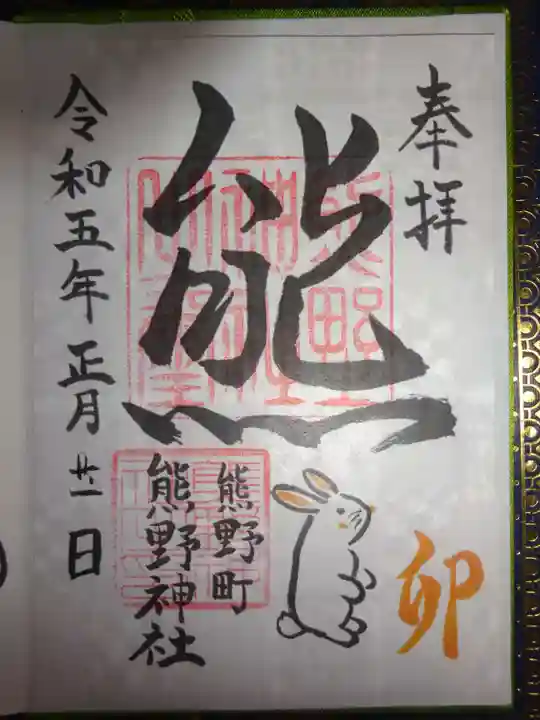 奉拝
熊
熊野町
熊野神社
卯
令和五年正月廿一日